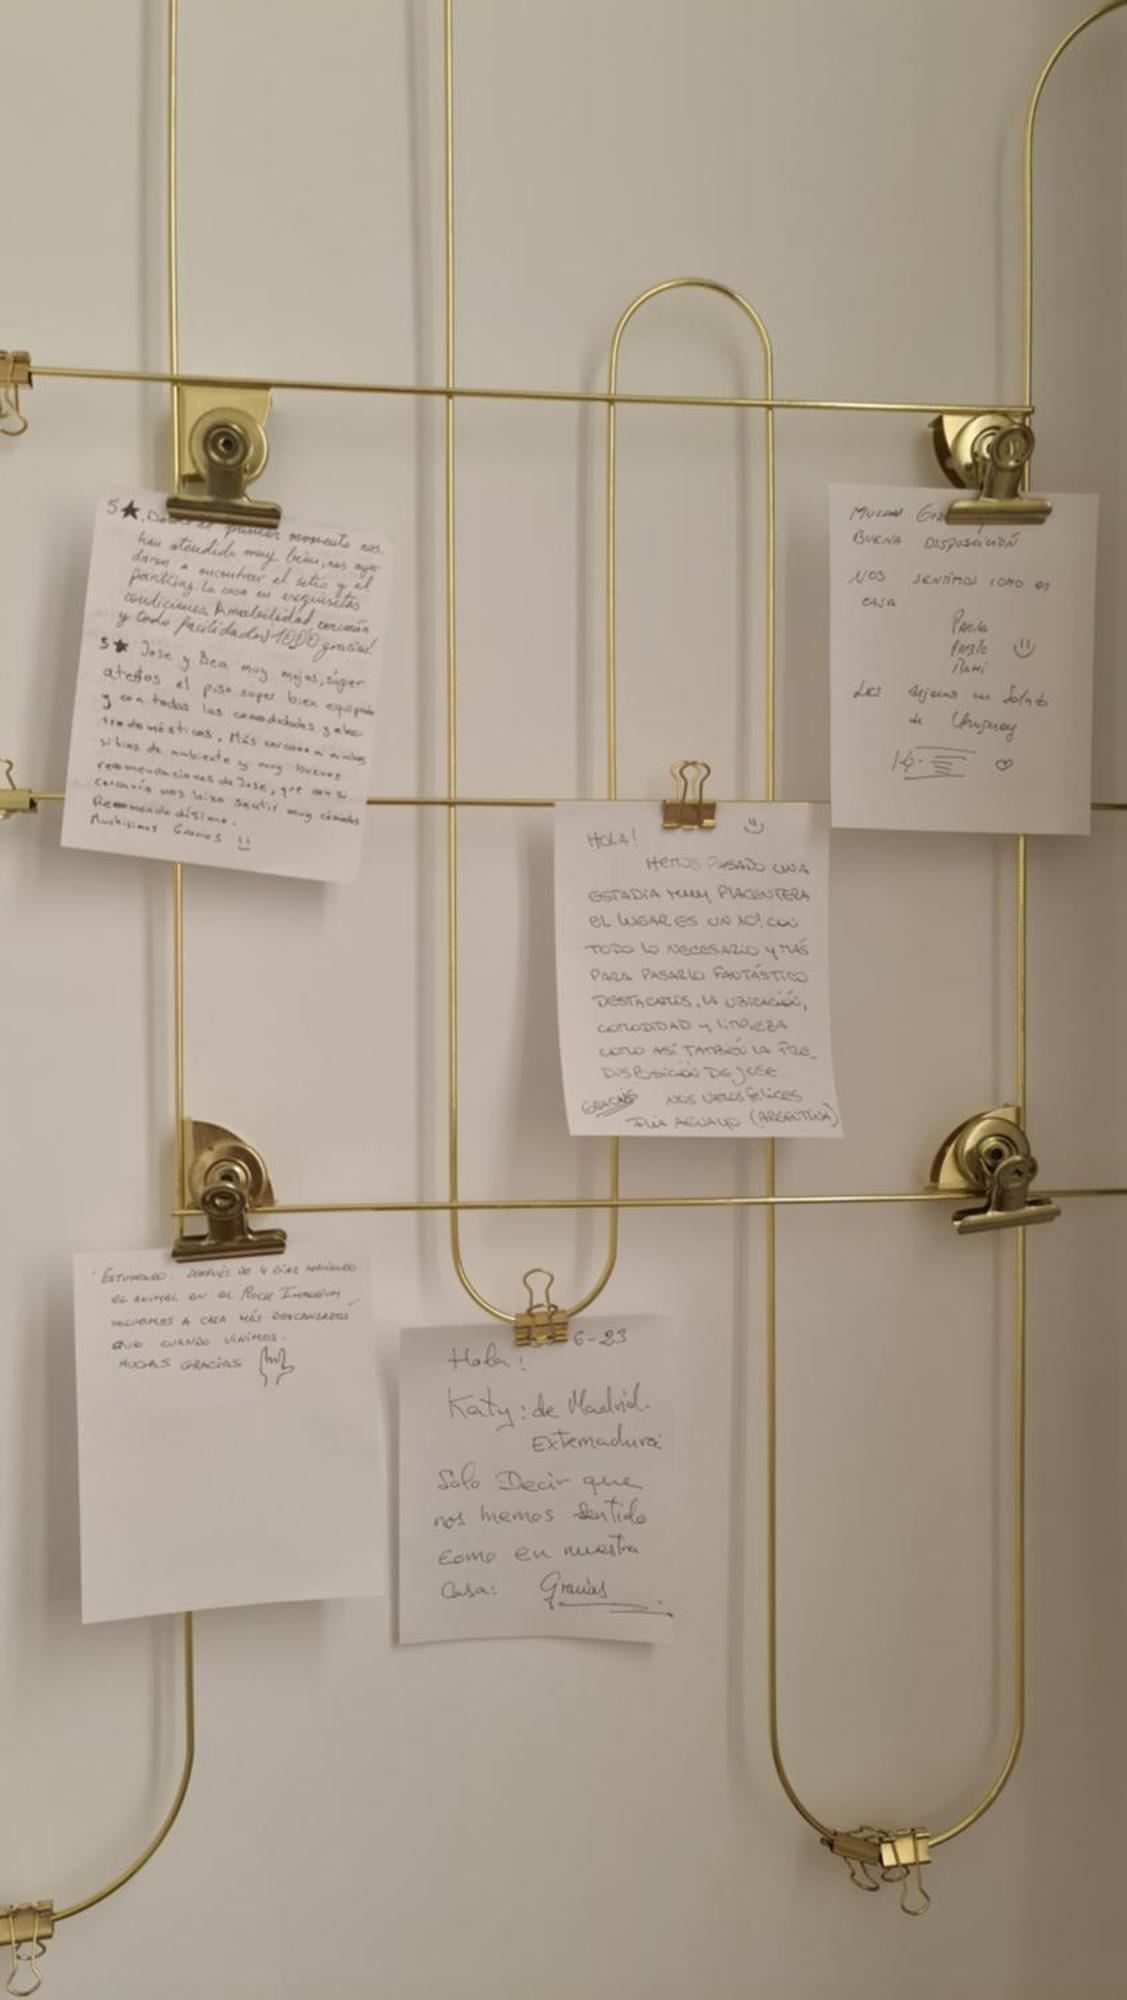 5★. Desde el primer momento nos
han atendido muy bien, nos ayu-
daron a encontrar el sitio y el
parking. La casa en exquisitas
condiciones. Amabilidad, cercanía
y todo facilidades! 1000 gracias!
5★ Jose y Bea muy majos, súper
atentos el piso super bien equipado
y con todas las comodidades y elec-
trodomésticos. Más cercano a muchos
sitios de ambiente y muy buenas
recomendaciones de Jose, que con su
cercanía nos hizo sentir muy cómodos
Recomendadísimo.
Muchísimas Gracias
Muchas
BUENA DISPOSICIÓN
NOS SENTIMOS COMO EN
CASA
PAOLA
PABLO
Les dejamos un Saludo
de Uruguay
HOLA!
HEMOS PASADO UNA
ESTADÍA MUY PLACENTERA
EL LUGAR ES UN 10! CON
TODO LO NECESARIO Y MÁS
PARA PASARLO FANTÁSTICO
DESTACAMOS, LA UBICACIÓN,
COMODIDAD Y LIMPIEZA
COMO ASÍ TAMBIÉN LA PRE-
DISPOSICIÓN DE JOSE.
GRACIAS NOS VAMOS FELICES
FLIA AGUAYO (ARGENTINA)
ESTUPENDO. DESPUÉS DE 4 DÍAS HACIENDO
EL ANIMAL EN EL ROCK IMPERIUM
VOLVEMOS A CASA MÁS DESCANSADOS
QUE CUANDO VINIMOS.
MUCHAS GRACIAS
6-23
Hola:
Katy: de Madrid.
Extremadura
Solo Decir que
nos hemos sentido
como en nuestra
Casa: Gracias